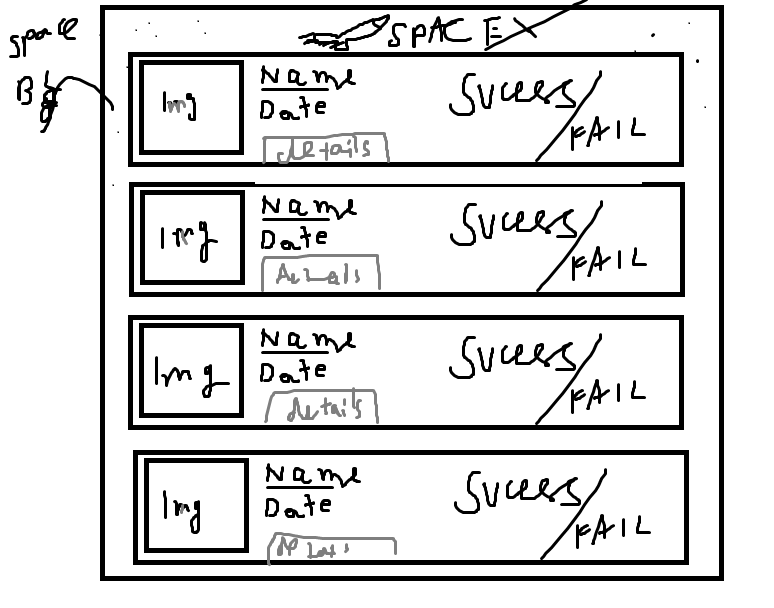 space
Bg
SPACEX
Img
Name
Date
details
SUCCESS/FAIL
Img
Name
Date
SUCCESS/FAIL
Img
Name
Date
details
SUCCESS/FAIL
Img
Name
Date
SUCCESS/FAIL